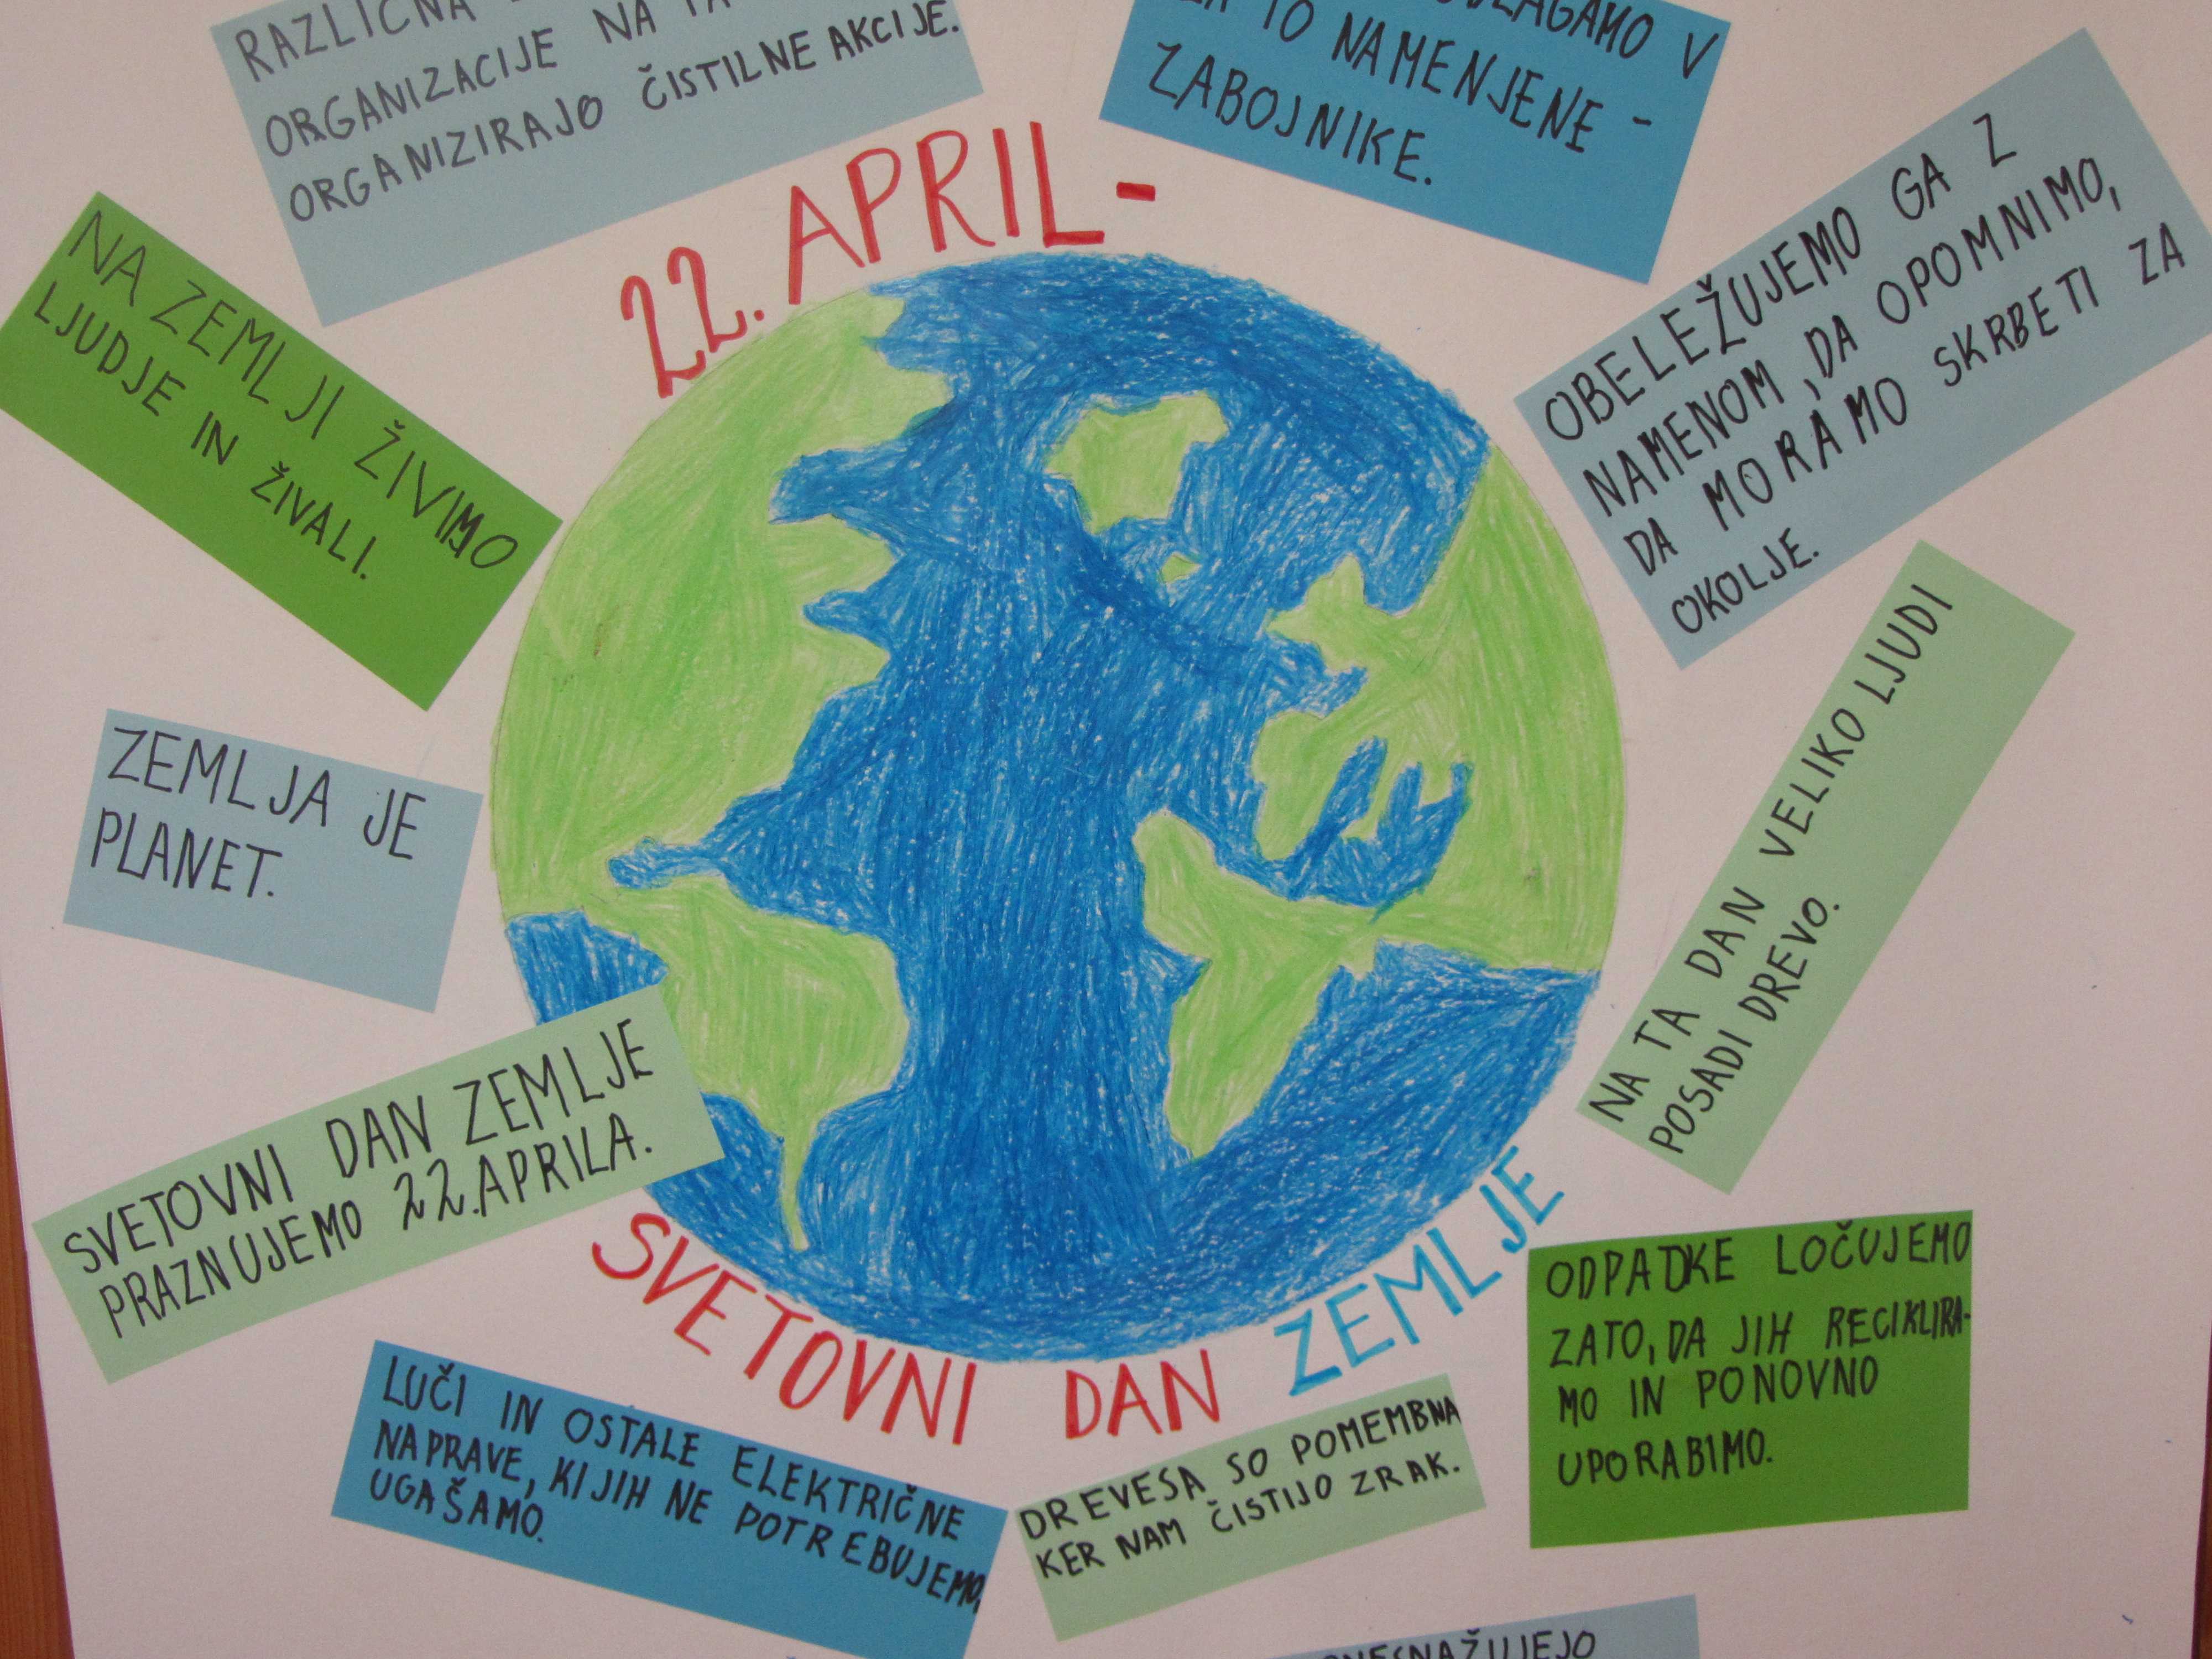 RAZLIČNA
ORGANIZACIJE NA
ORGANIZIRAJO ČISTILNE AKCIJE.
TO NAMENJENE -
ZABOJNIKE.
22. APRIL -
NA ZEMLJI ŽIVIMO
LJUDJE IN ŽIVALI.
OBELEŽUJEMO GA Z
NAMENOM, DA OPOMNIMO,
DA MORAMO SKRBETI ZA
OKOLJE.
ZEMLJA JE
PLANET.
NA TA DAN VELIKO LJUDI
POSADI DREVO.
SVETOVNI DAN ZEMLJE
PRAZNUJEMO 22. APRILA.
SVETOVNI DAN ZEMLJE
ODPADKE LOČUJEMO
ZATO, DA JIH RECIKLIRA-
MO IN PONOVNO
UPORABIMO.
LUČI IN OSTALE ELEKTRIČNE
NAPRAVE, KI JIH NE POTREBUJEMO,
UGAŠAMO.
DREVESA SO POMEMBNA
KER NAM ČISTIJO ZRAK.